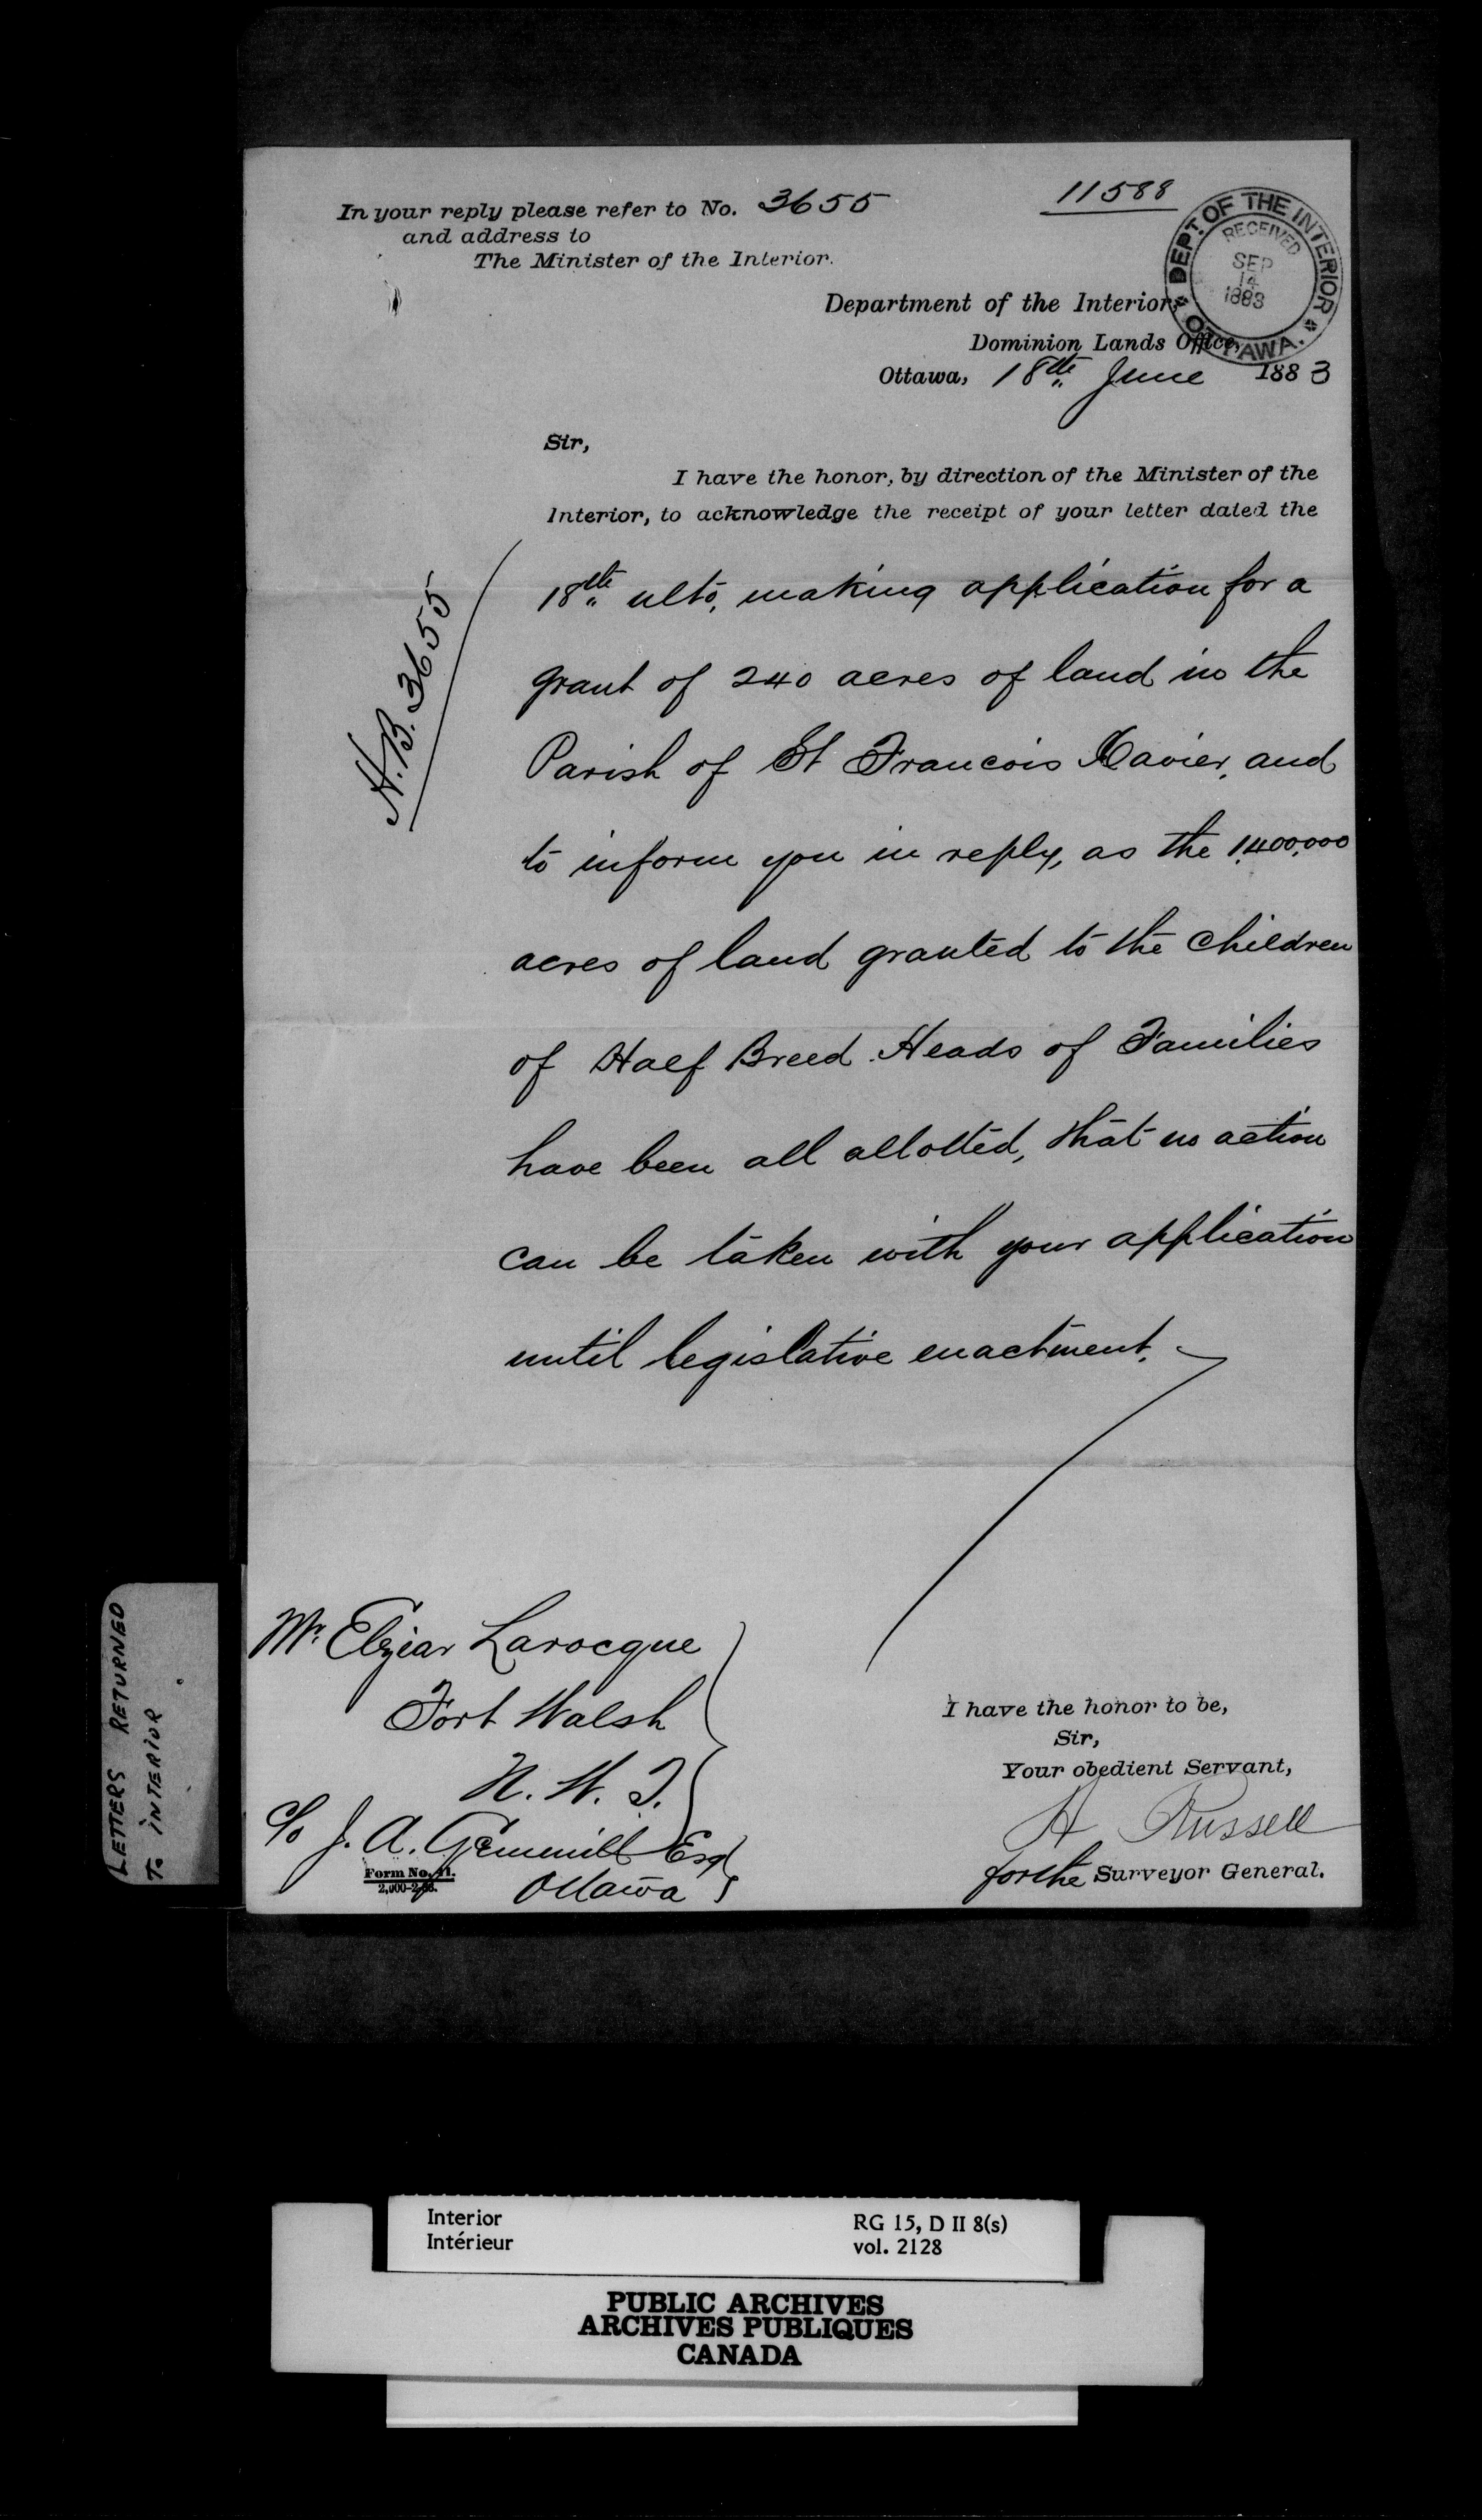 In your reply please refer to No. 3655
and address to
The Minister of the Interior.
11588
DEPT. OF THE INTERIOR
OTTAWA.
RECEIVED
SEP
14
1883
Department of the Interior,
Dominion Lands Office,
Ottawa, 18th June 1883
Sir,
I have the honor, by direction of the Minister of the
Interior, to acknowledge the receipt of your letter dated the
H.B. 3655
18th ulto, making application for a
grant of 240 acres of land in the
Parish of St Francois Xavier, and
to inform you in reply, as the 1,400,000
acres of land granted to the children
of Half Breed Heads of Families
have been all allotted, that no action
can be taken with your application
until legislative enactment.
Mr. Elzear Larocque
Fort Walsh
N. W. T.
c/o J. A. Gemmill Esq
Ottawa
Form No. 41.
I have the honor to be,
Sir,
Your obedient Servant,
A Russell
for the Surveyor General.
LETTERS RETURNED
To INTERIOR
Interior
Intérieur
RG 15, D II 8(s)
vol. 2128
PUBLIC ARCHIVES
ARCHIVES PUBLIQUES
CANADA